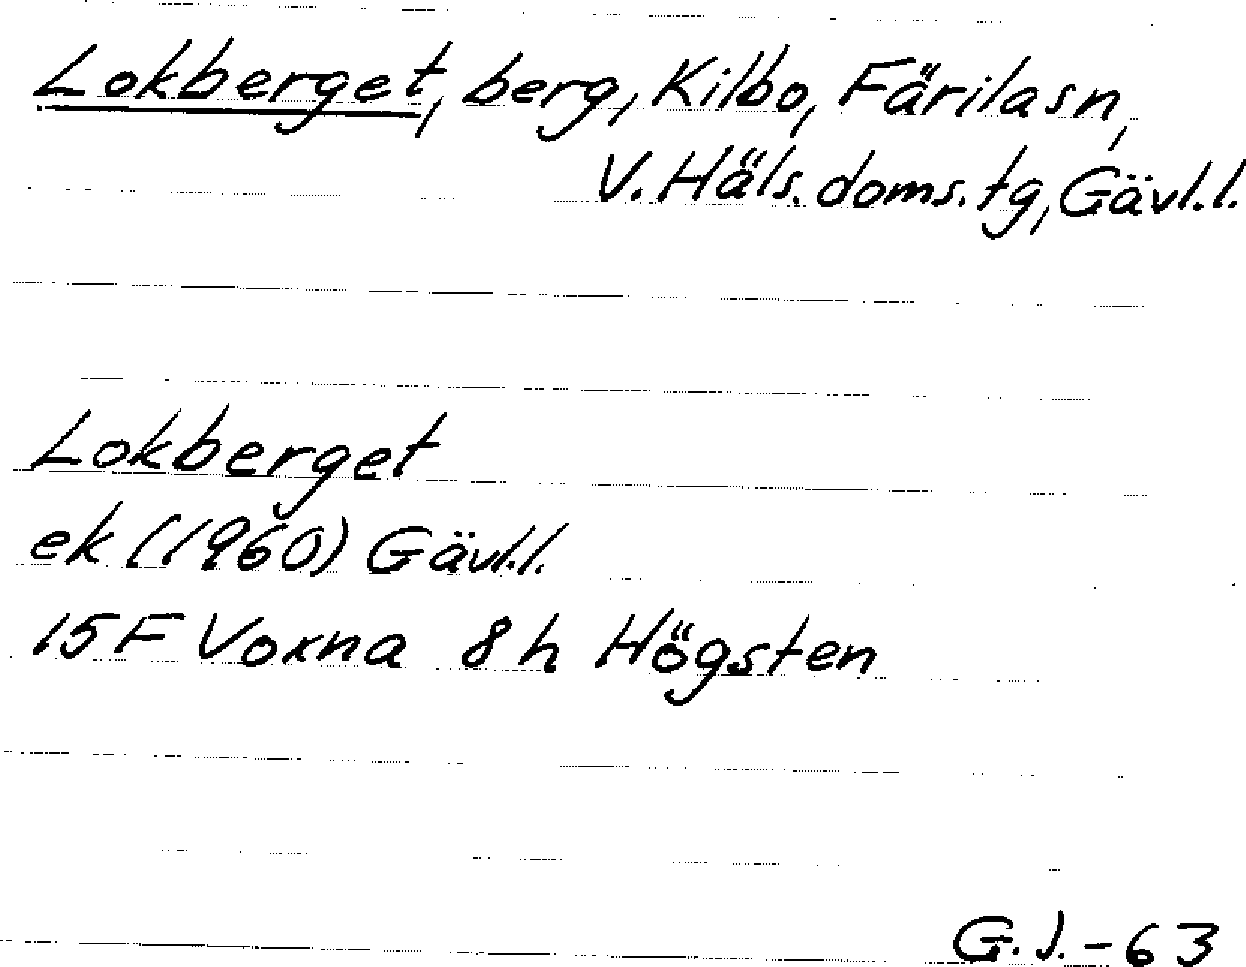 Lokberget, berg, Kilbo, Färilasn,
V. Häls. doms. tg, Gävl.l.
Lokberget
ek (1960) Gävl.l.
15F Voxna 8h Högsten
G.J.-63